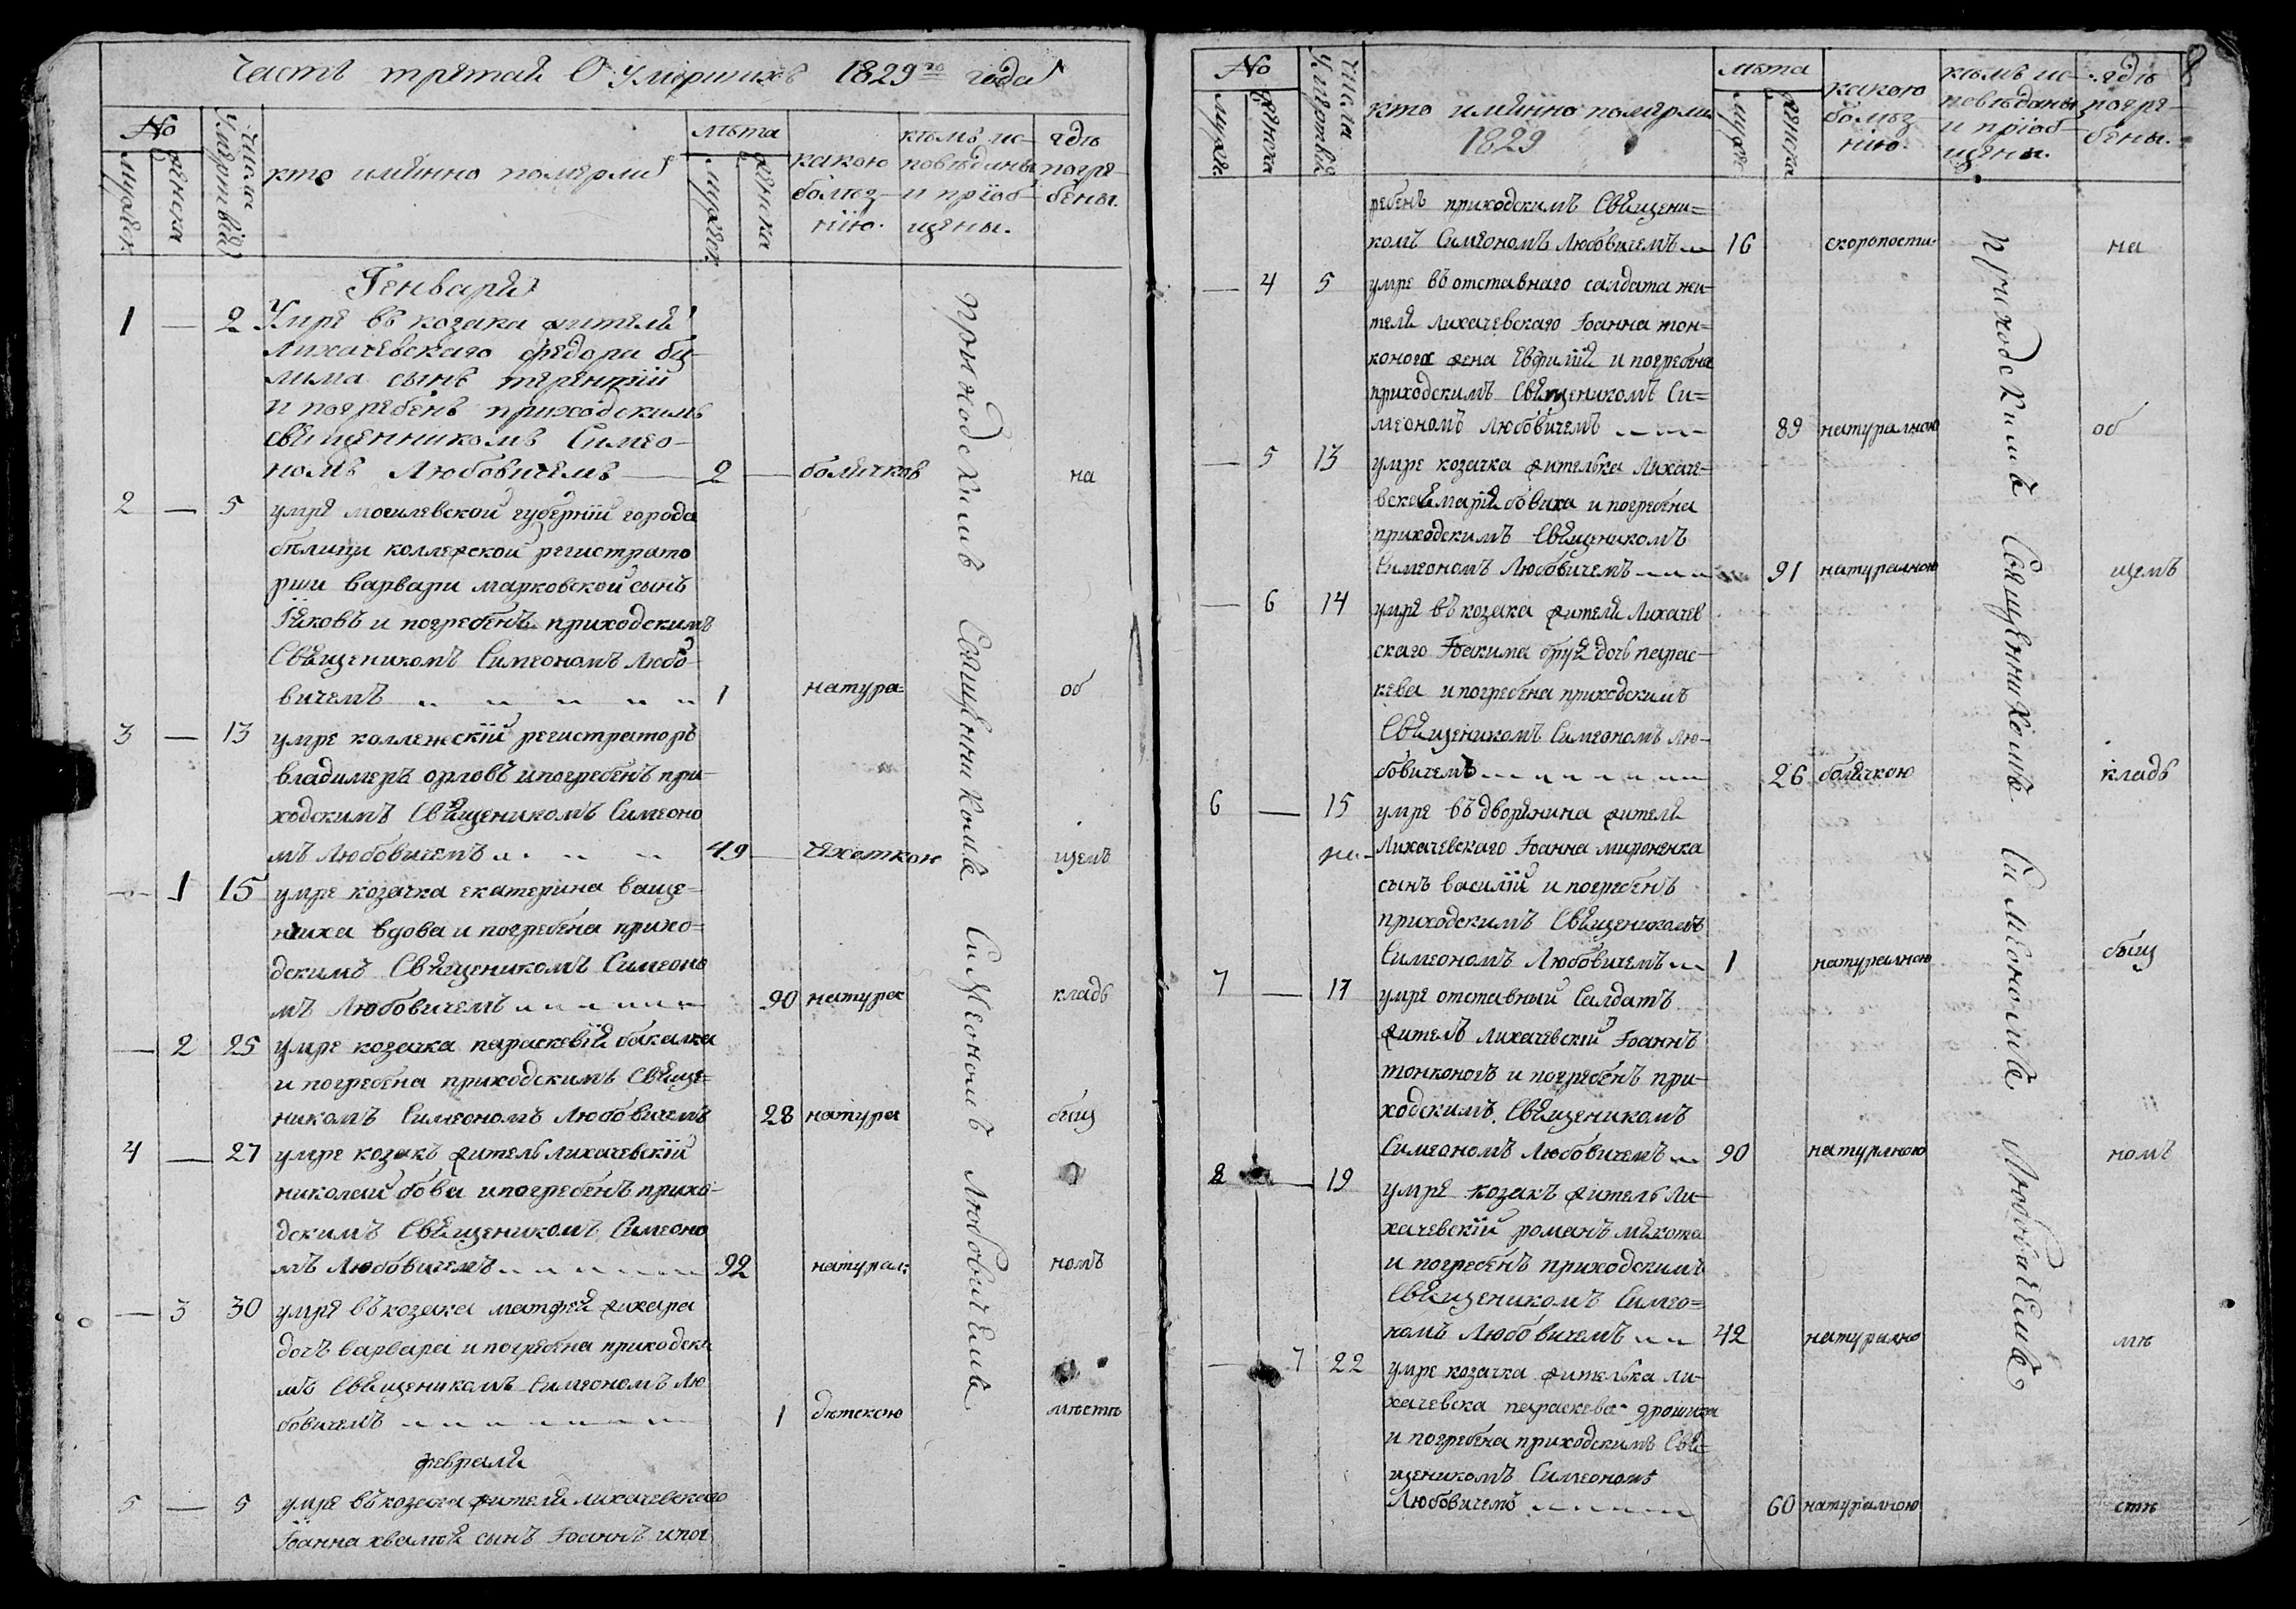 Часть третая О Умершихъ 1829го года
№
мужеск
женска
Числа Умертвія
кто имянно померли
лѣта
мужеск
женска
какою болѣз-нію.
кѣмъ ис-повѣданы и пріоб-щены.
гдѣ погре-бены.
Генваря
1 — 2 Умре въ козака жителя
Лихачевскаго федора би-
лима сынъ терентій
и погребенъ приходскимъ
священникомъ Симео-
номъ Любовичемъ — 2 — болячков на
2 — 5 умре могилевской губерніи города
бѣлици коллежской регистрато
рши варвари марковской сынъ
Іяковъ и погребенъ приходскимъ
Священикомъ Симеономъ Любо-
вичемъ 1 натура= об
3 — 13 умре коллежскій регистраторъ
владимеръ орловъ и погребенъ при-
ходскимъ Священикомъ Симеоно
мъ Любовичемъ 49 — чахоткою щемъ
— 1 15 умре козачка екатерина ваще-
нкиха вдова и погребена прихо=
дскимъ Священикомъ Симеоно
мъ Любовичемъ 90 натура кладь
— 2 25 умре козачка параскевія бакалка
и погребена приходскимъ Свяще=
никомъ Симеономъ Любовичемъ 28 натура бищ
4 — 27 умре козакъ житель Лихачевскій
николай бова и погребенъ прихо-
дскимъ Священикомъ Симеоно
мъ Любовичемъ 92 натурал: номъ
— 3 30 умре въ козака матфея жихара
дочъ варвара и погребена приходски
мъ Священикомъ Симеономъ Лю
бовичемъ 1 дѣтскою мѣстѣ
февраля
5 — 5 умре въ козака жителя лихачевскаго
Іоанна хвамія сынъ Іоаннъ и пог
приходскимъ Священникомъ Симеономъ Любовичемъ
8
№
мужес
женска
Числа Умертвія
кто имянно померли
1829
лѣта
мужес
женска
какою болѣз-нію.
кѣмъ ис-повѣданы и пріоб-щены.
гдѣ погре-бены.
ребенъ приходскимъ Священи=
комъ Симеономъ Любовичемъ 16 скоропости на
— 4 5 умре въ отставнаго салдата жи-
теля лихачевскаго Іоанна тон=
конога жена Евфимія и погребена
приходскимъ Священикомъ Си=
меономъ любовичемъ 89 натуралною об
— 5 13 умре козачка жителька лихаче=
вская марія бовиха и погребена
приходскимъ Священикомъ
Симеономъ Любовичемъ 91 натуралною щемъ
— 6 14 умре въ козака жителя Лихачев
скаго Іоакима бруя дочь парас-
кева и погребена приходскимъ
Священикомъ Симеономъ Лю-
бовичемъ 26 болячкою кладь
6 — 15 умре въ дворянина жителя
Лихачевскаго Іоанна мироненка
сынъ василій и погребенъ
приходскимъ Священикомъ
Симеономъ Любовичемъ 1 натуралною бищ
7 — 17 умре отставный Салдатъ
житель лихачевскій Іоаннъ
тонконогъ и погребенъ при-
ходскимъ Священикомъ
Симеономъ Любовичемъ 90 натурлною номъ
8 — 19 умре козакъ житель Ли-
хачевскій романъ мякота
и погребенъ приходскимъ
Священикомъ Симео=
номъ Любовичемъ 42 натурално мѣ
— 7 22 умре козачка жителька ли-
хачевска параскева ярошиха
и погребена приходскимъ Свя=
щеникомъ Симеономъ
Любовичемъ 60 натуралною стѣ
приходскимъ Священникомъ Симеономъ Любовичемъ